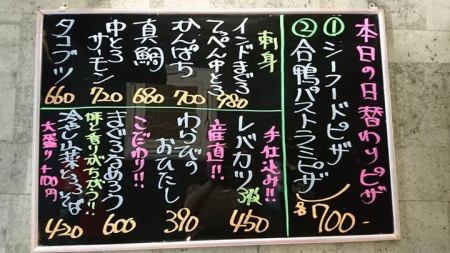 本日の日替わりピザ
①シーフードピザ
②合鴨パストラミピザ
各700-
刺身
インドまぐろ
てっぺん中とろ 980
かんぱち 700
真鯛 680
中とろサーモン 720
タコブツ 660
手仕込み!!
レバカツ 450
産直!!
わらびのおひたし 390
こだわり!!
まぐろなめろう 600
味と香りがちがう!!
冷し山菜とろろそば 420
大盛り+100円